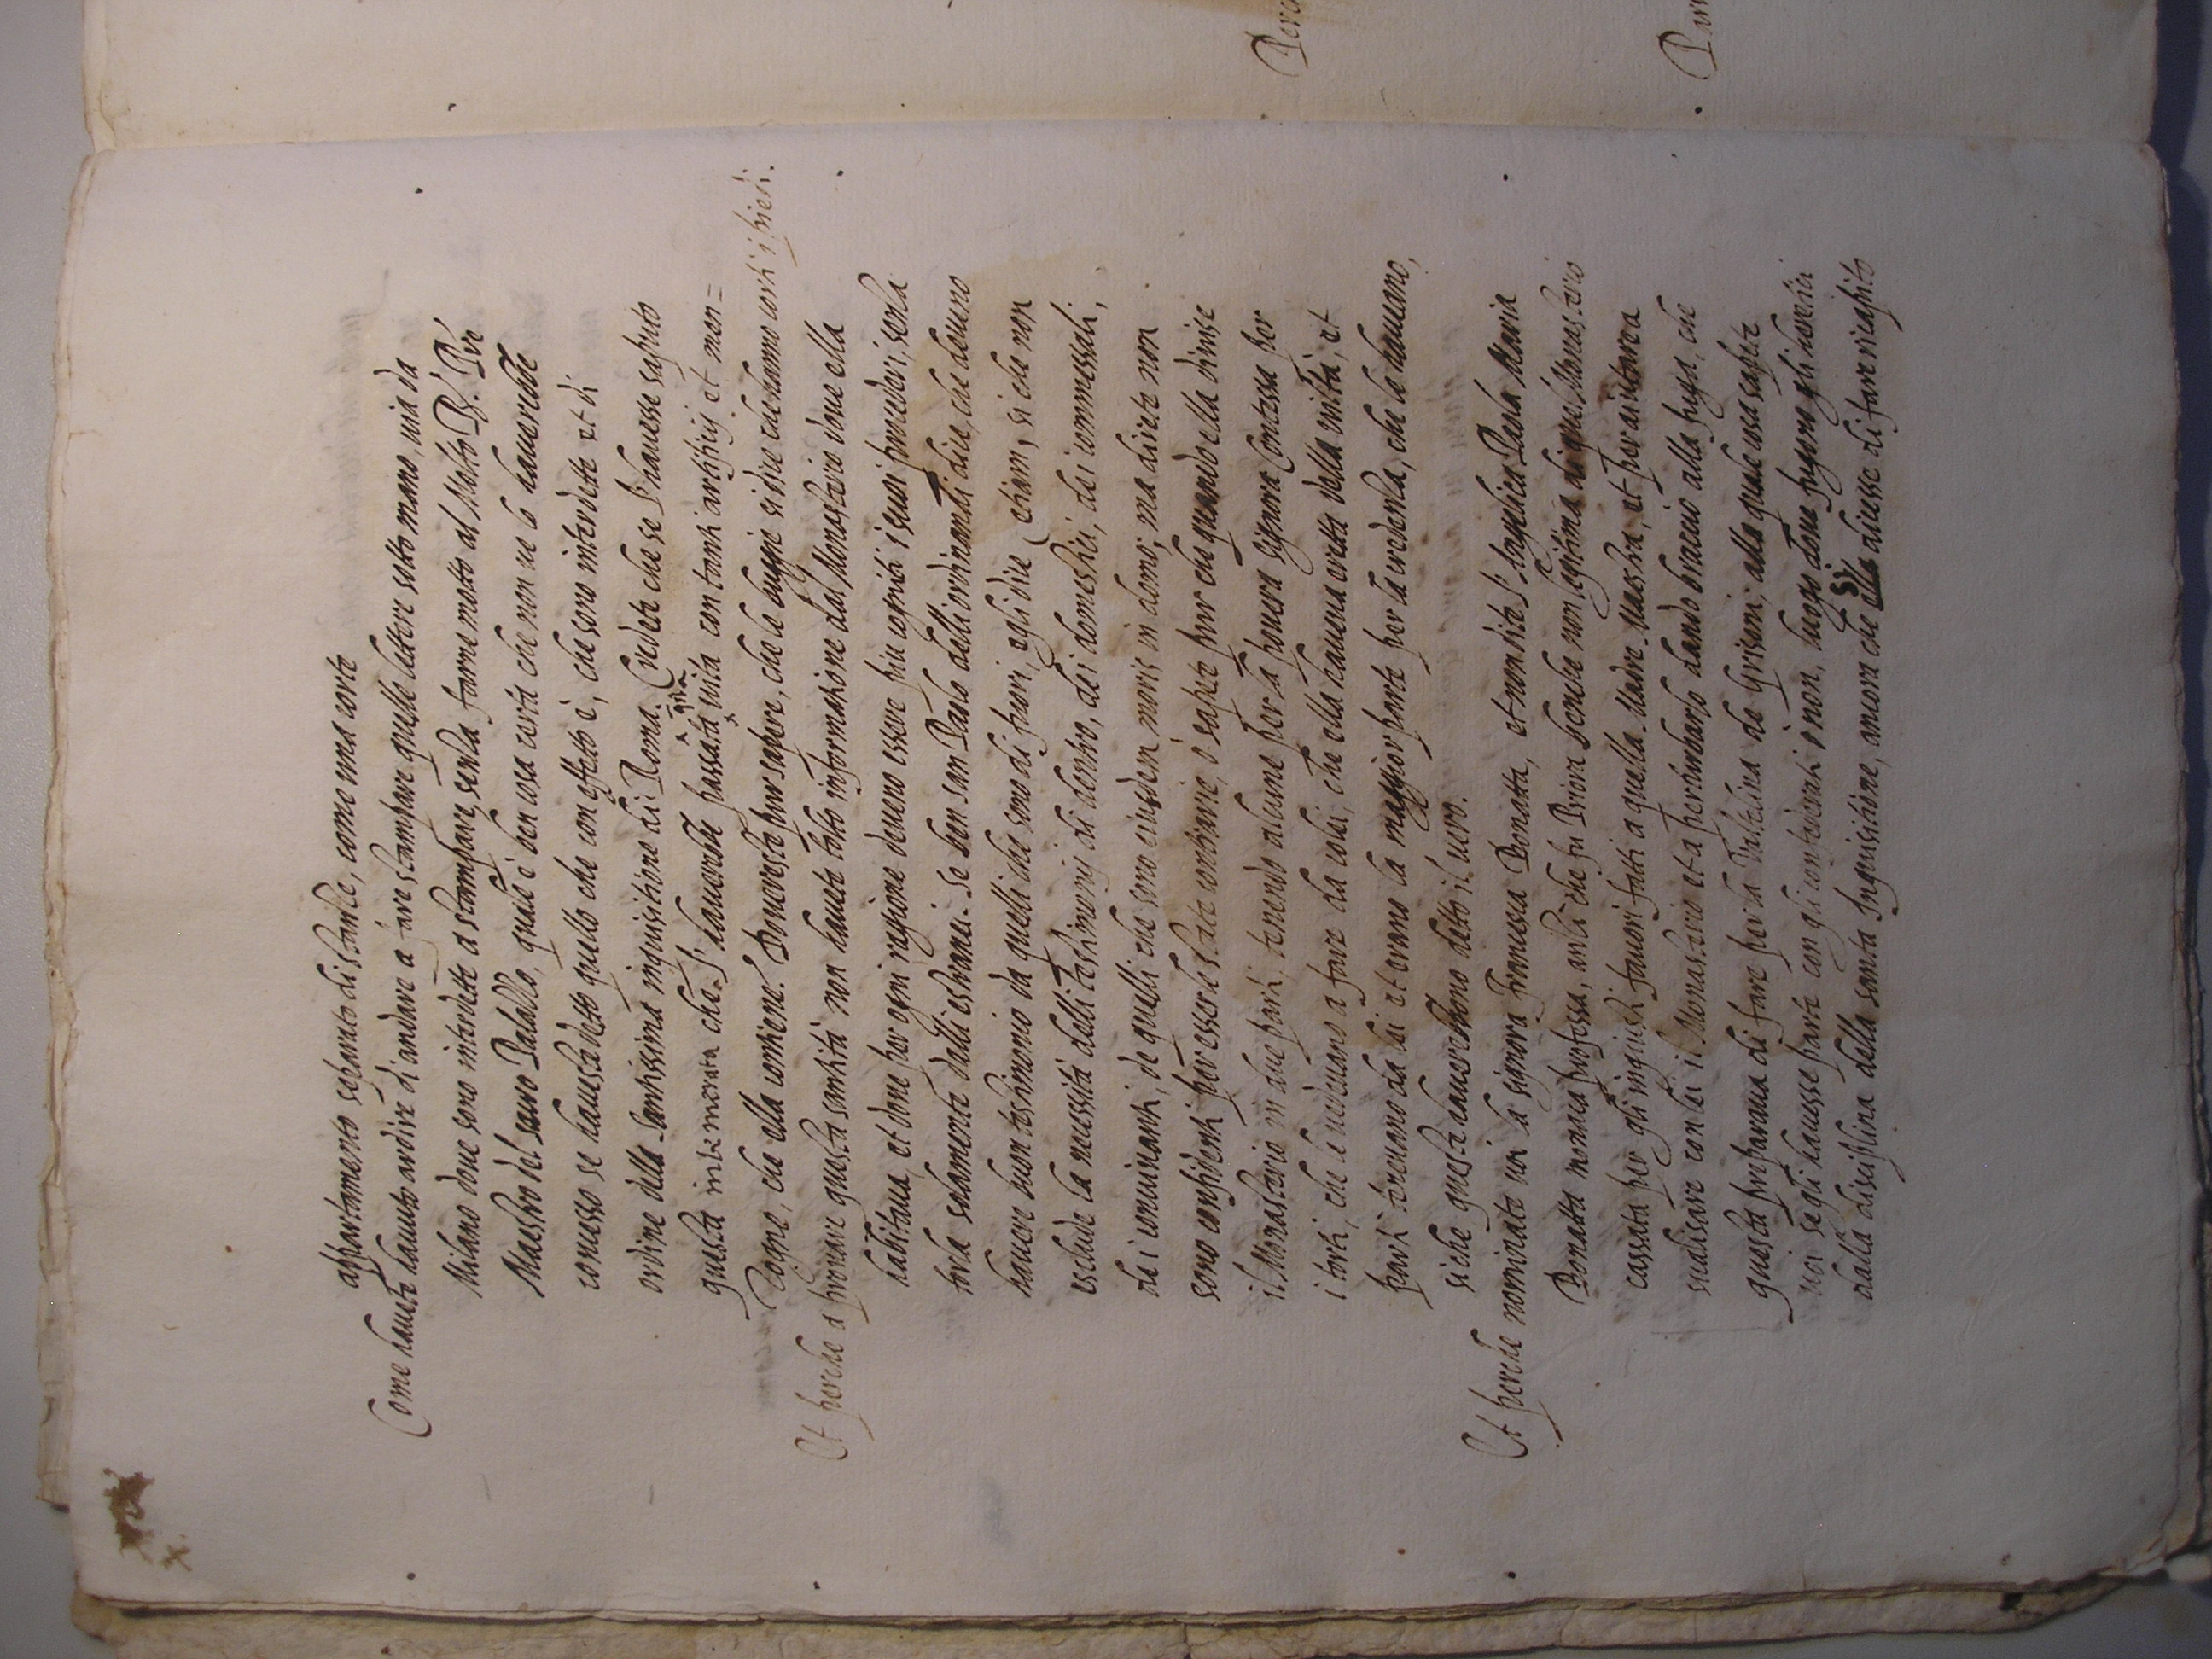 appartamento separato di stanze, come una corte
Come havete hauuto ardire d'andare a fare stampare quelle lettere sotto mano, uia da
Milano doue sono interdette a stampare, senza farne motto al Molto R.do P.re
Maestro del sacro Palazzo, quale è ben cosa certa che non ue lo hauerebbe
concesso se hauesse detto quello che con effetto è, che sono interdette et di
ordine della Santissima inquisitione di Roma. Credete che se l'hauesse saputo
questa intemerata che l'hauerebbe passata uita con tanti artifitij et men=
zogne, che ella contiene. Douereste pur sapere, che le buggie si dice che hanno corti i piedi.
Et perche a prouare questa santità non hauete tolto informatione dal Monasterio doue ella
habitaua, et doue per ogni ragione deueno essere piu cogniti i suoi procederi, senza
torla solamente dalli estranei. Se ben san Paulo delli ordinandi dice, che deueno
hauere buon testimonio da quelli che sono di fuori, egli dice etiam, si che non
esclude la necessità delli testimonij di dentro, dei domestici, dei commessali,
de i conuinanti, de quelli che sono eiusdem moris in domo; ma direte non
sono confidenti per esserle state contrarie, o sapete pur che quando ella diuise
il Monasterio in due parti, tenendo alcune per la pouera Signora Contessa per
i torti, che le uedeuano a fare da colei, che ella haueua eretta della uiltà, et
parti teneuano da lei et erano la maggior parte per la credenza, che le haueuano,
si che queste hauerebbono detto il uero.
Et perche nominate uoi la signora Francesca Bonatta, et non dite l'Angelica Paola Maria
Bonatta monaca professa, anzi che fu Priora seben non legitima di quel Monasterio
cassata per gli ingiusti fauori fatti a quella Madre Maestra, et per aiutarea
scandisare con lei il Monasterio et a perturbarlo dando braccio alla fuga, che
questa preparaua di fare per la Valtelina de Grisoni; alla quale cosa sapete
uoi se gli hauesse parte con gli confederati o non, luogo doue fugeno gli heretici
dalla disciplina della santa Inquisitione, ancora che si dicesse di fare ricapito
Perc
Pur